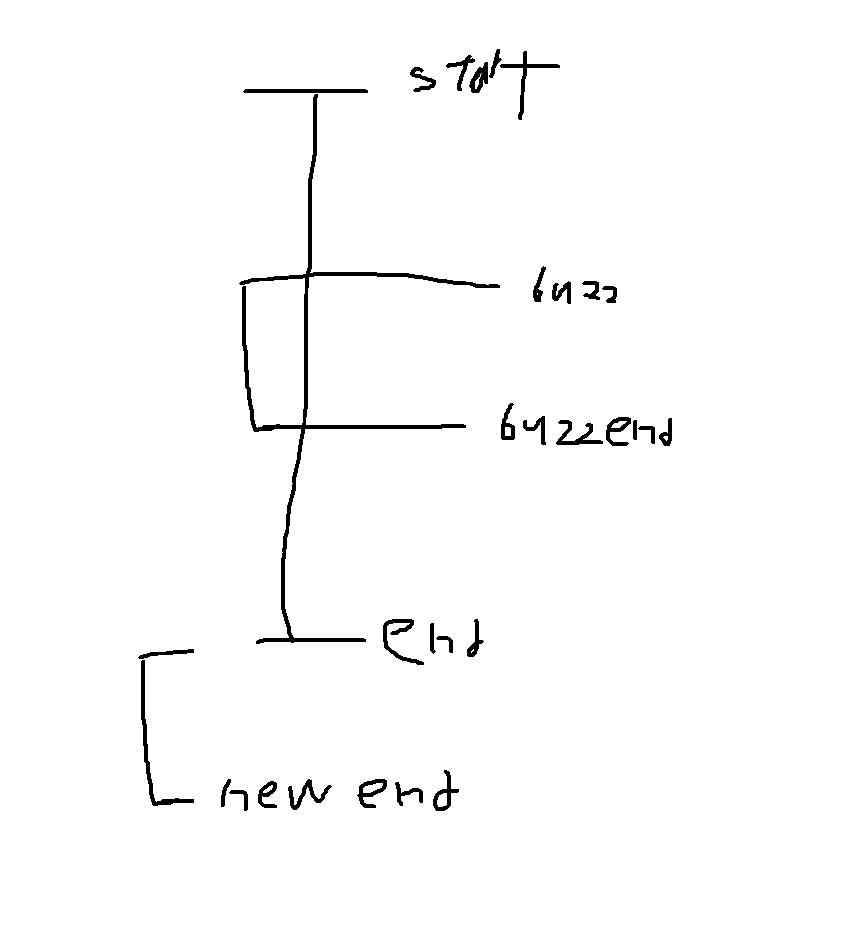 start
buzz
buzz end
end
new end